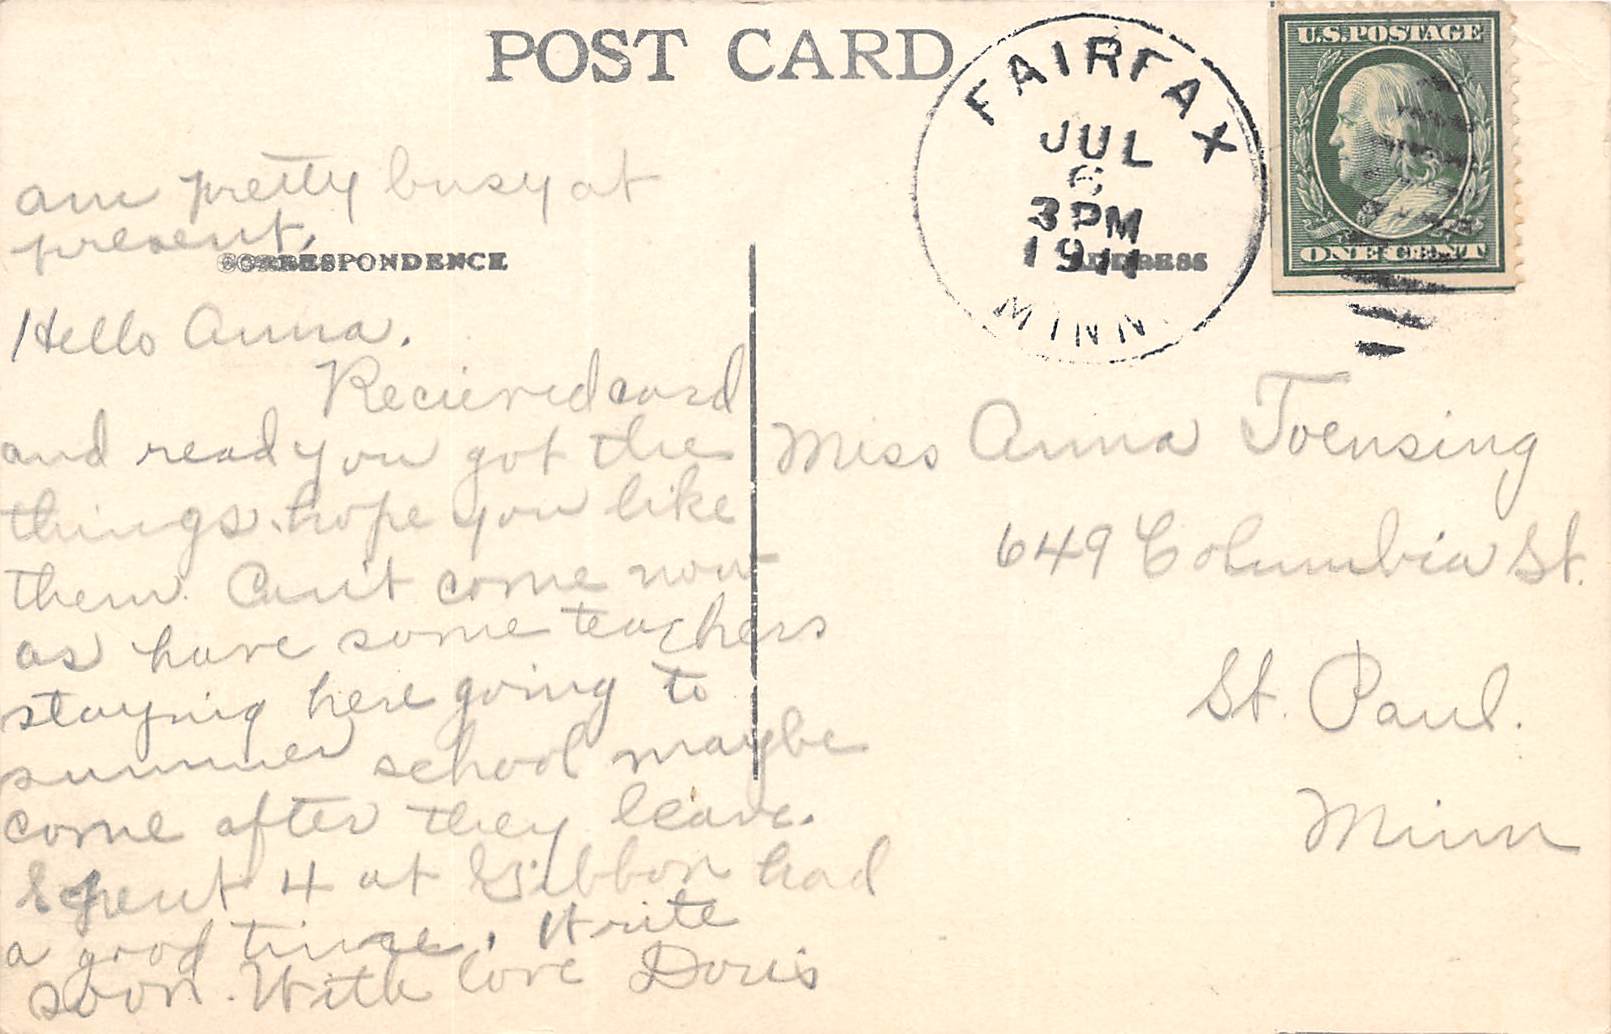 POST CARD
am pretty busy at
present.
CORRESPONDENCE
Hello Anna.
Recieved card
and read you got the
things. hope you like
them. Can't come now
as have some teachers
staying here going to
summer school maybe
come after they leave.
Spent 4 at Gibbon had
a good time. Write
soon. With love Doris
FAIRFAX
JUL
6
3 PM
1911
MINN.
ADDRESS
U.S. POSTAGE
ONE CENT
Miss Anna Toensing
649 Columbia St.
St. Paul.
Minn